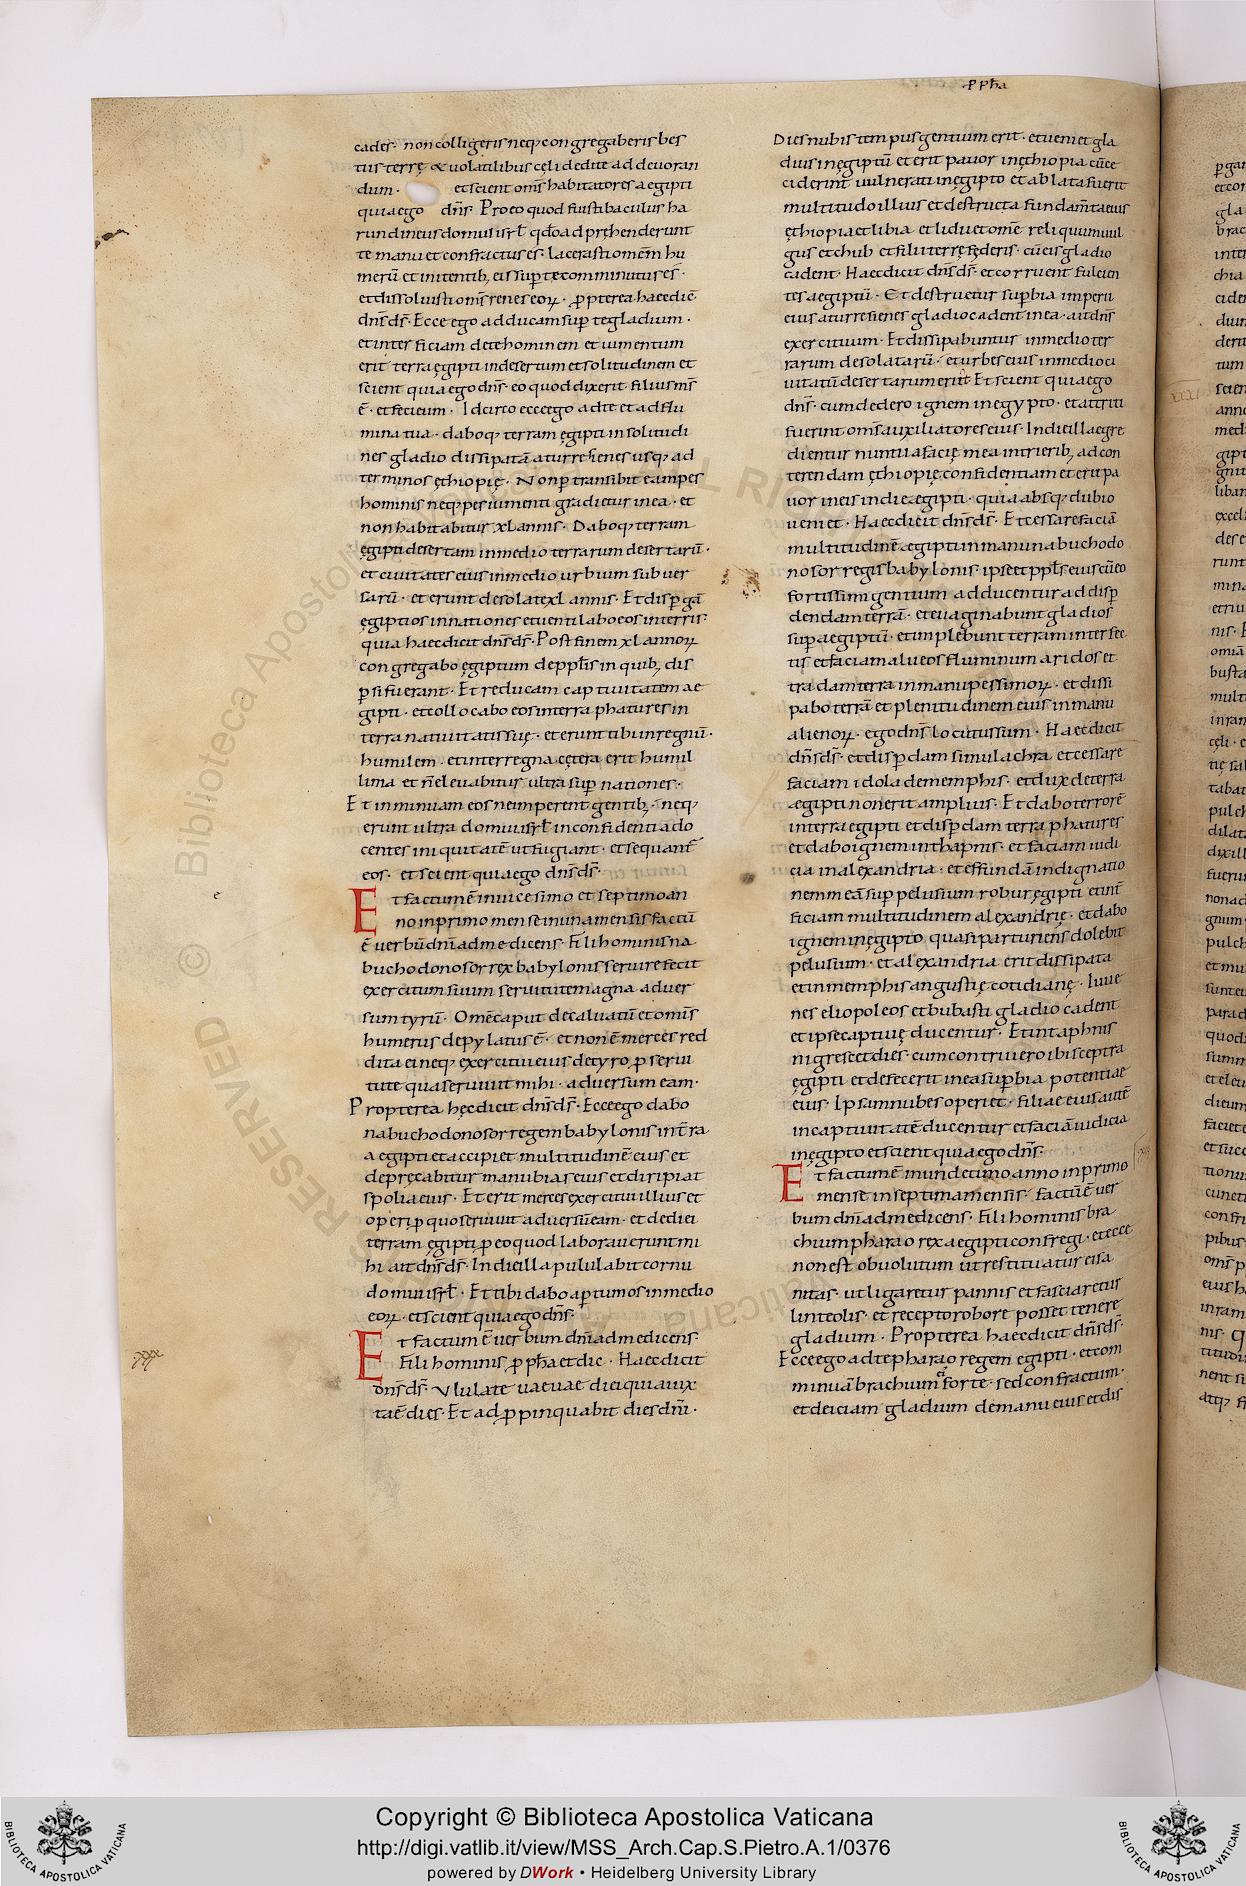 .P Pħa
cades· non colligeris neq; congregaberis bes
tiis terrę & volatilibus cęli dedi te ad deuoran
dum· et scient om̄s habitatores aegipti
quia ego dn̄s· Pro eo quod fuisti baculus ha
rundineus domui isrł qd̄o adprehenderunt
te manu et confractus es· lacerasti omēm hu
merū et initentib; eis sup te comminutus es·
et dissoluisti om̄s renes eoꝝ· ꝓpterea haec dic̄
dn̄s ds̄· Ecce ego adducam sup te gladium·
et interficiam de te hominem et iumentum
erit terra ęgipti indesertum et solitudinem et
scient quia ego dn̄s· eo quod dixerit· fluuius m̄s
ē· et feci eum· Idcirco ecce ego ad te et ad flu
mina tua· daboq; terram ęgipti in solitudi
nes gladio dissipatā a turre sienes usq; ad
terminos ęthiopię· Non ptransibit eam pes
hominis neq; pes iumenti gradietur in ea· et
non habitabitur xl annis· Daboq; terram
ęgipti desertam in medio terrarum desertarū·
et ciuitates eius in medio urbium subuer
sarū· et erunt desolate xl annis· Et dispgā
ęgiptios in nationes et uentilabo eos in terris·
quia haec dicit dn̄s ds̄· Post finem xl annoꝝ
congregabo ęgiptum de ppłis in quib; dis
psi fuerant· Et reducam captiuitatem ae
gipti· et collocabo eos in terra phatures in
terra natiuitatis suę· et erunt tibi in regnū·
humilem· et inter regna cętera erit humil
lima et n̄ eleuabitur ultra sup nationes·
Et inminuam eos ne imperent gentib;· neq;
erunt ultra domui isrł in confidentia do
centes iniquitatē ut fugiant· et sequant̄
eos· et scient quia ego dn̄s ds̄·
Et factum ē in uicesimo et septimo an
no in primo mense in una mensis factū
ē uerbū dn̄i ad me dicens· Fili hominis na
buchodonosor rex babylonis seruire fecit
exercitum suum seruitute magna aduer
sum tyrū· Omē caput decaluatū et omīs
humerus depylatus ē· et non ē merces red
dita ei neq; exercitui eius de tyro, p serui
tute qua seruiuit mihi· aduersum eam·
Propterea hęc dicit dn̄s ds̄· Ecce ego dabo
nabuchodonosor regem babylonis in tr̄ra
aegipti et accipiet multitudinē eius et
depręcabitur manubias eius et diripiat
spolia eius· Et erit merces exercitui illius et
operi, p quo seruiuit aduersū eam· et dedi ei
terram ęgipti, p eo quod laborauerunt mi
hi ait dn̄s ds̄· In die illa pululabit cornu
domui isrł· Et tibi dabo aptum os in medio
eoꝝ· et scient quia ego dn̄s·
Et factum ē uerbum dn̄i ad me dicens·
Fili hominis ꝓpħa et dic· Haec dicit
dn̄s ds̄· Vlulate uae uae diei quia iux
ta ē dies· Et adpropinquabit dies dn̄i·
Dies nubis tempus gentium erit· et ueniet gla
dius in ęgiptū et erit pauor in ęthiopia cū ce
ciderint uulnerati in ęgipto et ablata fuerit
multitudo illius et destructa fundam̄ta eius
ęthiopia et libia et lidi et omē reliquum uul
gus et chub et filii terrę fęderis· cū eis gladio
cadent· Haec dicit dn̄s ds̄· et corruent fulcien
tes aegiptū· Et destruetur supbia imperii
eius a turre sienes gladio cadent in ea· ait dn̄s
exercituum· Et dissipabuntur in medio ter
rarum desolatarū· et urbes eius in medio ci
uitatū desertarum erit· Et scient quia ego
dn̄s· cum dedero ignem in egypto· et attriti
fuerint om̄s auxiliatores eius· In die illa egre
dientur nuntii a facię mea in trierib; ad con
terendam ęthiopię confidentiam et erit pa
uor in eis in die aegipti· quia absq; dubio
ueniet· Haec dicit dn̄s ds̄· Et cessare faciā
multitudinē aegipti in manu nabuchodo
nosor regis babylonis· ipse et ppłs eius cū eo
fortissimi gentium adducentur ad disp
dendam terrā· et euaginabunt gladios
sup aegiptū· et implebunt terram interfec
tis et faciam alueos fluminum aridos et
tradam terra in manu pessimoꝝ· et dissi
pabo terrā et plenitudinem eius in manu
alienoꝝ· ego dn̄s locutus sum· Haec dicit
dn̄s ds̄· et dispdam simulachra· et cessare
faciam idola de memphis· et dux de terra
aegipti non erit amplius· Et dabo terrorē
in terra egipti et dispdam terra phatures
et dabo ignem in thapnis· et faciam iudi
cia in alexandria· et effundā indignatio
nem meā sup pelusium robur ęgipti et int̄
ficiam multitudinem alexandrię· et dabo
ignem in ęgipto quasi parturiens dolebit
pelusium· et alexandria erit dissipata
et in memphis angustię cotidianę· Iuue
nes eliopoleos et bubasti gladio cadent
et ipse captiuę ducentur· Et in taphnis
nigrescet dies· cum contriuero ibi sceptra
ęgipti et defecerit in ea supbia potentiae
eius· Ipsam nubes operiet· filiae eius autē
in captiuitatē ducentur et faciā iudicia
in ęgipto et scient quia ego dn̄s·
Et factum ē in undecimo anno in primo
mense in septima mensis· factū ē uer
bum dn̄i ad me dicens· Fili hominis bra
chium pharao rex aegipti confregi· et ecce
non est obuolutum ut restituatur ei sa
nitas· ut ligaretur pannis et fasciaretur
linteolis· et recepto robore posset tenere
gladium· Propterea haec dicit dn̄s ds̄·
Ecce ego ad te pharao regem egipti· et com
minuā brachium ei̓ forte· sed confractum·
et deiciam gladium de manu eius et dis